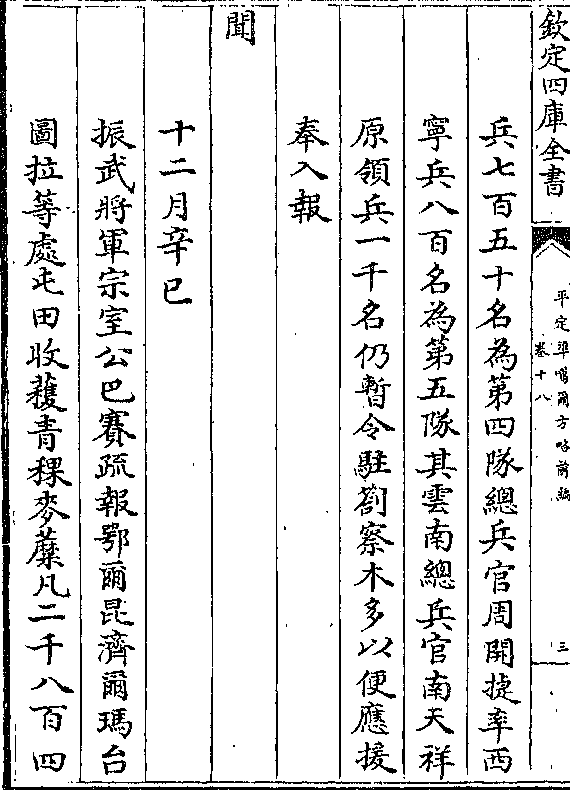 欽定四庫全書
平定準噶爾方略前編
卷十八
三
兵七百五十名為第四隊總兵官周開捷率西
寧兵八百名為第五隊其雲南總兵官南天祥
原領兵一千名仍暫令駐劄察木多以便應援
奉入報
聞
十二月辛巳
振武將軍宗室公巴賽疏報鄂爾昆濟爾瑪台
圖拉等處屯田收穫青稞麥蘼凡二千八百四